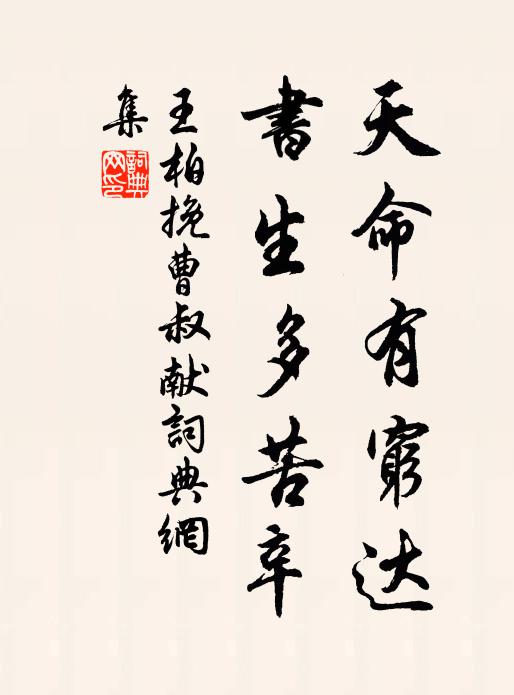 天命有窮达
書生多苦辛
王柏挽曹叔献詞典網
集
詞典网印